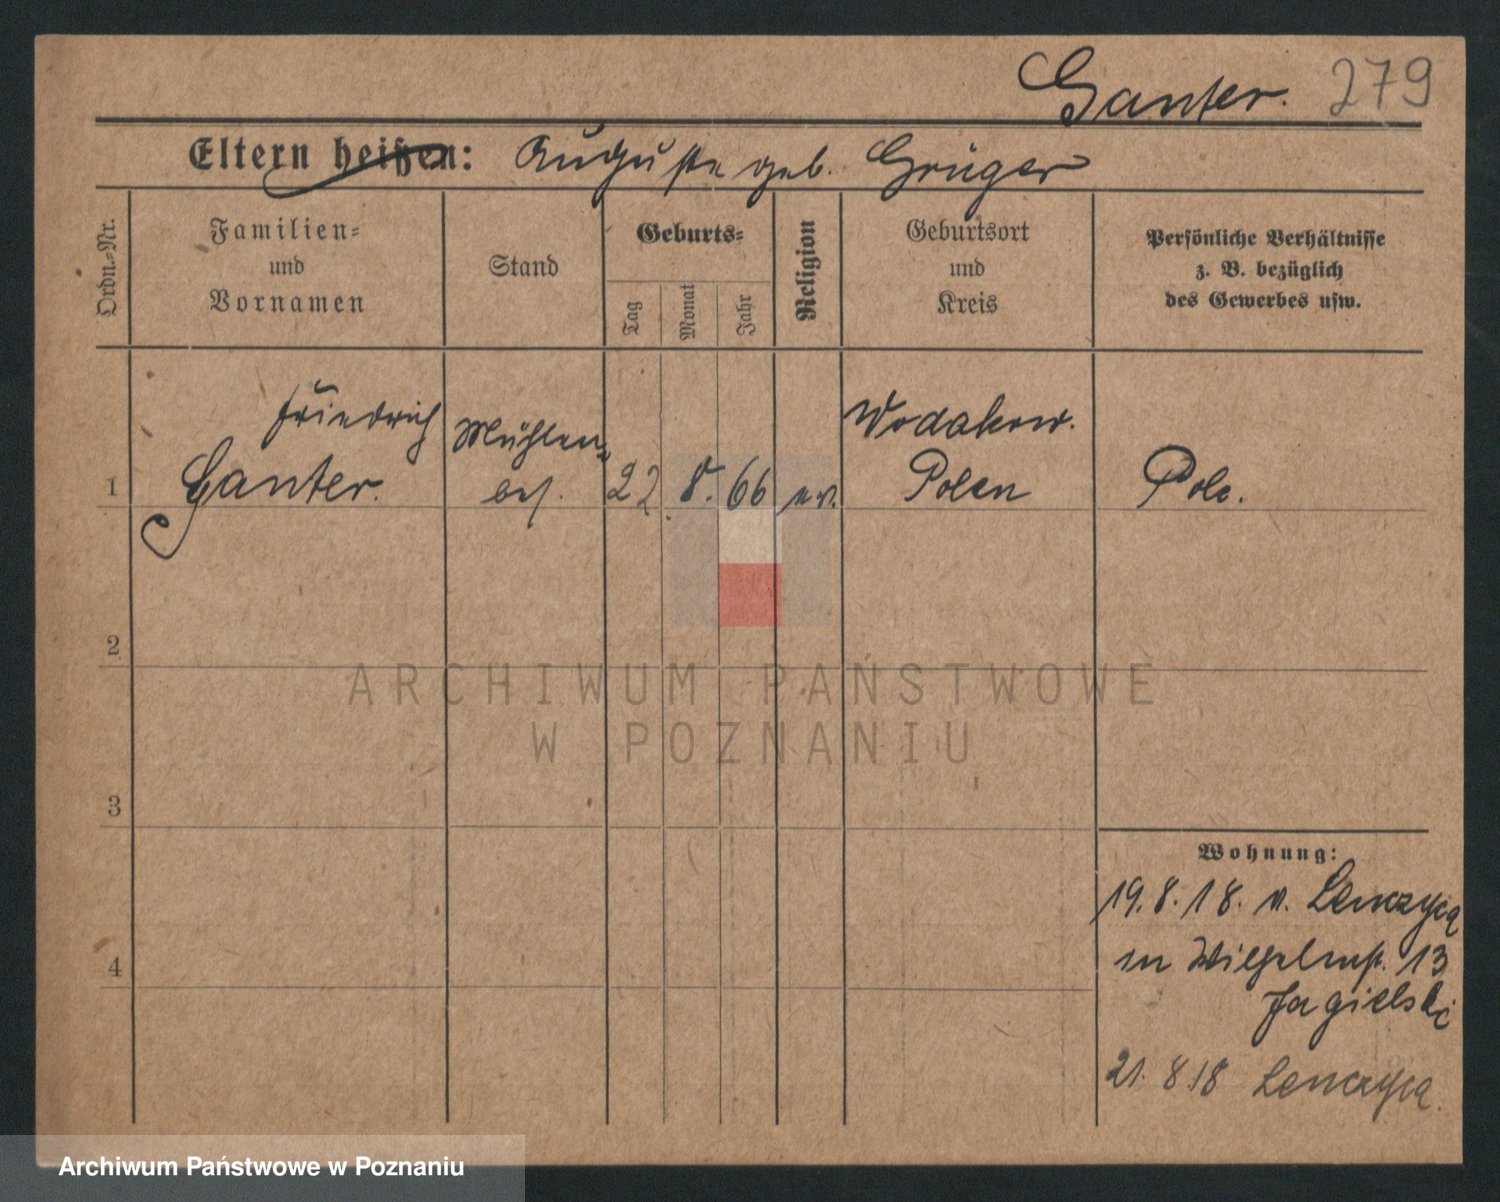 Ganter. 279
Eltern heißen: Auguste geb. Grüger
Ordn.-Nr.
Familien-
und
Vornamen
Stand
Geburts-
Tag
Monat
Jahr
Religion
Geburtsort
und
Kreis
Persönliche Verhältnisse
z. B. bezüglich
des Gewerbes usw.
1
Friedrich
Ganter.
Mühlen-
bes.
22 8. 66 ev.
Wodakow.
Polen
Pole.
2
3
4
Wohnung:
19.8.18. v. Lenczyca
in Wilhelmstr. 13
Jagielski
21. 8 18 Lenczyca.
ARCHIWUM PAŃSTWOWE
W POZNANIU
Archiwum Państwowe w Poznaniu